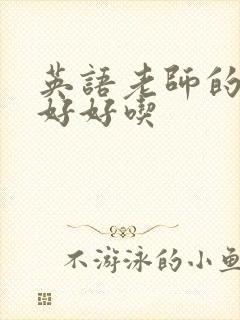 英語老師的
好好喫
不游泳的小魚